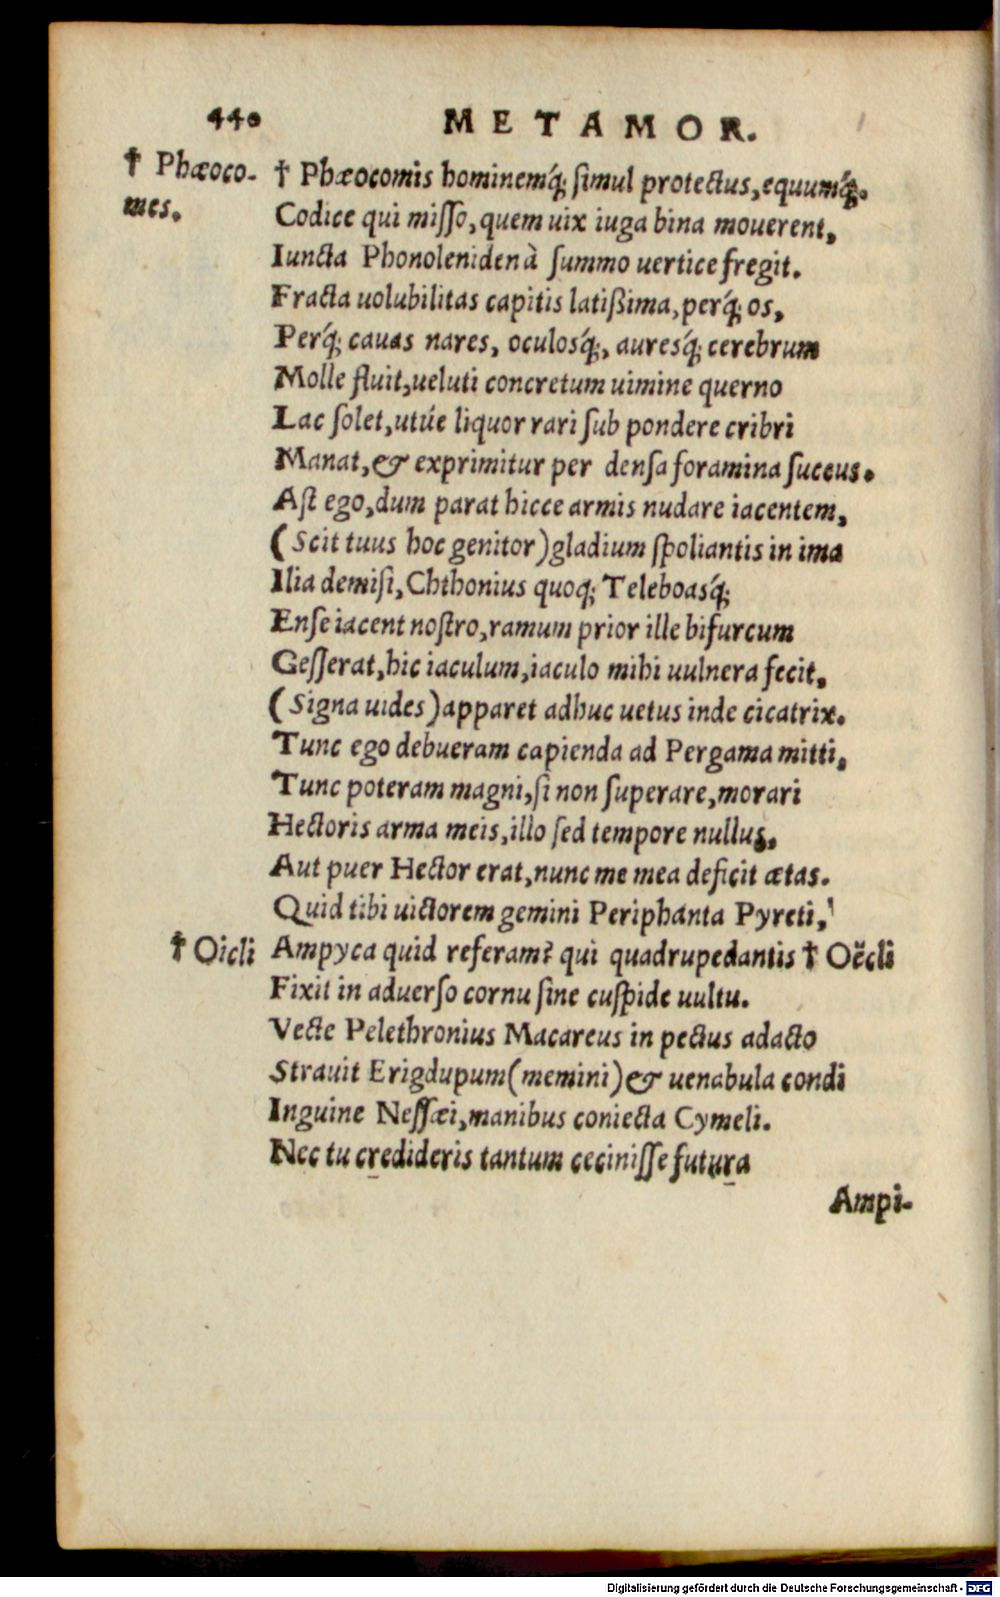 440 METAMOR.
† Phæoco-
mes.
† Phæocomis hominemq́; ſimul protectus, equumq́;.
Codice qui miſſo, quem uix iuga bina mouerent,
Iuncta Phonoleniden à ſummo uertice fregit.
Fracta uolubilitas capitis latißima, perq́; os,
Perq́; cauas nares, oculosq́;, auresq́; cerebrum
Molle fluit, ueluti concretum uimine querno
Lac ſolet, utúe liquor rari ſub pondere cribri
Manat, & exprimitur per denſa foramina ſuccus.
Aſt ego, dum parat hicce armis nudare iacentem,
(Scit tuus hoc genitor) gladium ſpoliantis in ima
Ilia demiſi, Chthonius quoq; Teleboasq́;
Enſe iacent noſtro, ramum prior ille bifurcum
Geſſerat, hic iaculum, iaculo mihi uulnera fecit,
(Signa uides) apparet adhuc uetus inde cicatrix.
Tunc ego debueram capienda ad Pergama mitti,
Tunc poteram magni, ſi non ſuperare, morari
Hectoris arma meis, illo ſed tempore nullus,
Aut puer Hector erat, nunc me mea deficit ætas.
Quid tibi uictorem gemini Periphanta Pyreti,
† Oicli
Ampyca quid referam? qui quadrupedantis † Oëcli
Fixit in aduerſo cornu ſine cuſpide uultu.
Vecte Pelethronius Macareus in pectus adacto
Strauit Erigdupum (memini) & uenabula condi
Inguine Neſſæi, manibus coniecta Cymeli.
Nec tu credideris tantum ceciniſſe futura
Ampi-
Digitalisierung gefördert durch die Deutsche Forschungsgemeinschaft - DFG